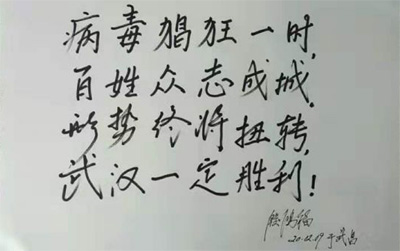 病毒猖狂一时,
百姓众志成城.
形势终将扭转,
武汉一定胜利!
于武昌